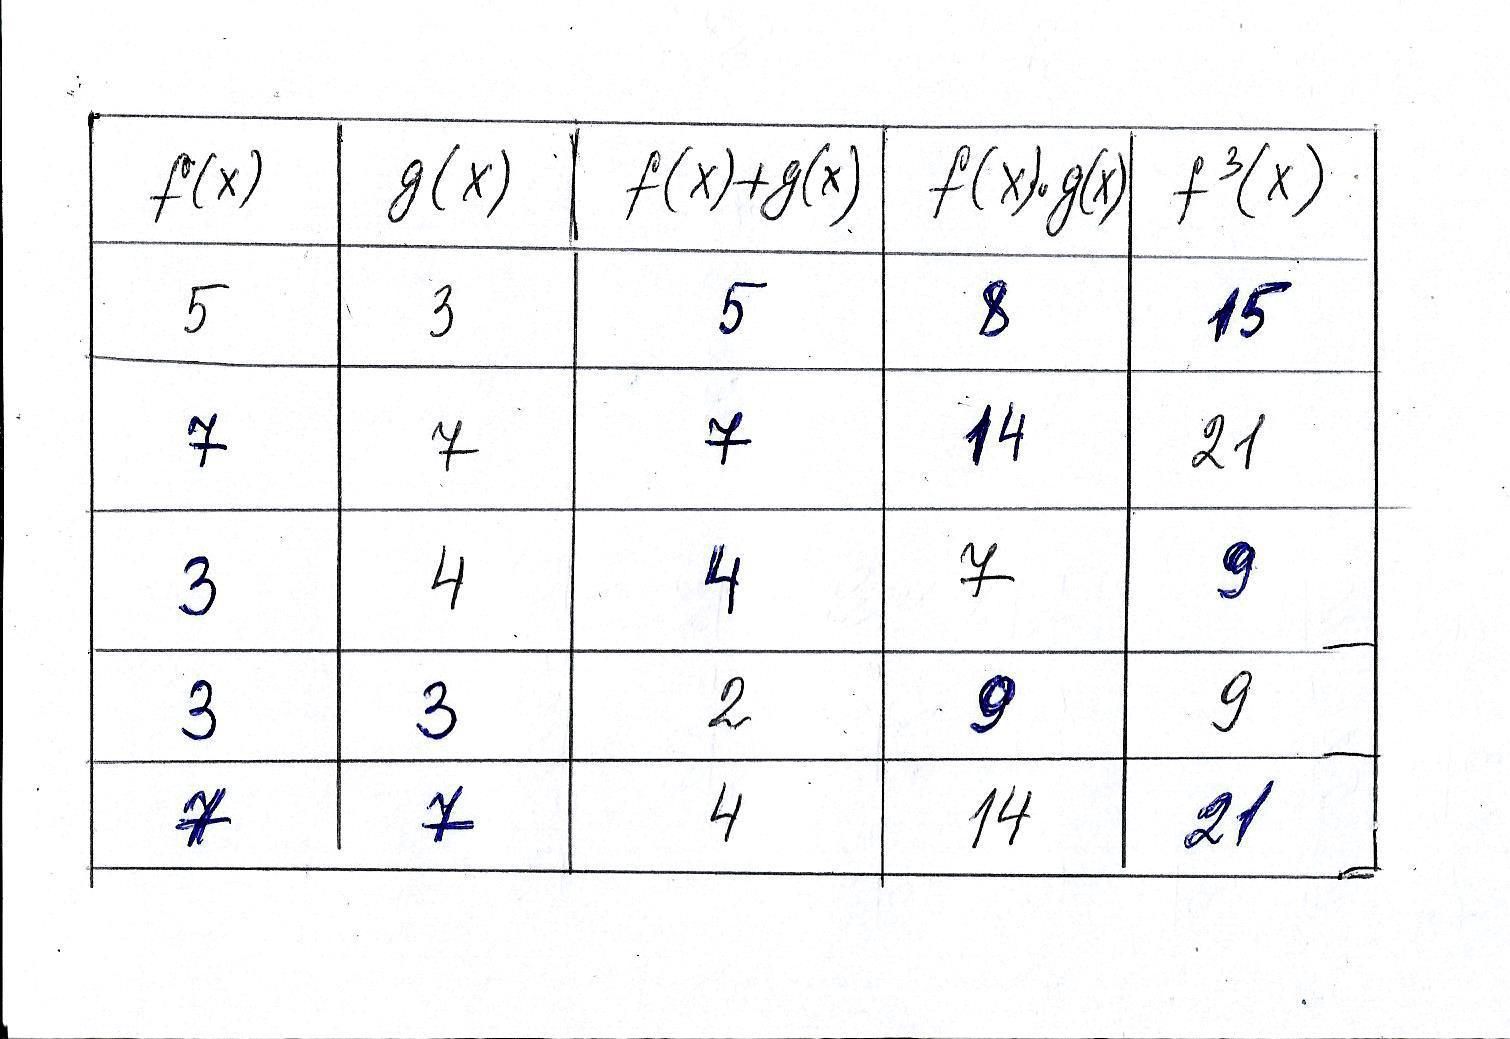 f(x) g(x) f(x)+g(x) f(x)·g(x) f³(x)
5 3 5 8 15
7 7 7 14 21
3 4 4 7 9
3 3 2 9 9
7 7 4 14 21